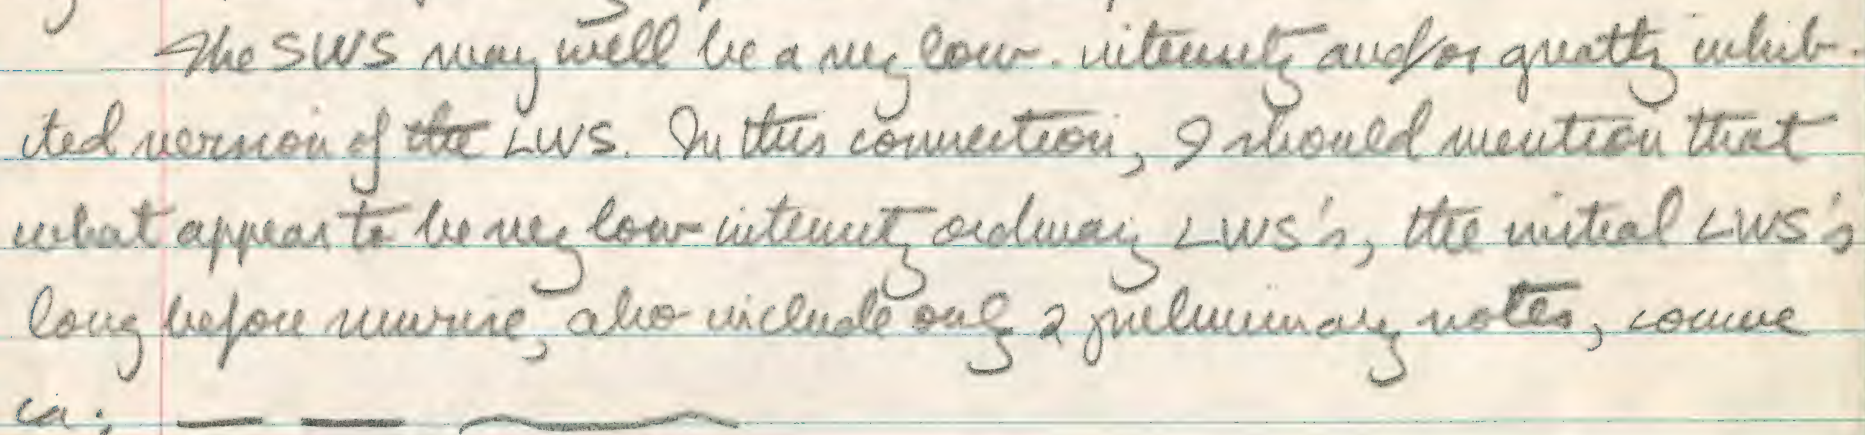 The SWS may well be a very low-intensity and/or greatly inhib-
ited version of the LWS. In this connection, I should mention that
what appear to be very low intensity ordinary LWS's, the initial LWS's
long before sunrise, also include only 2 preliminary notes, comme
ca: